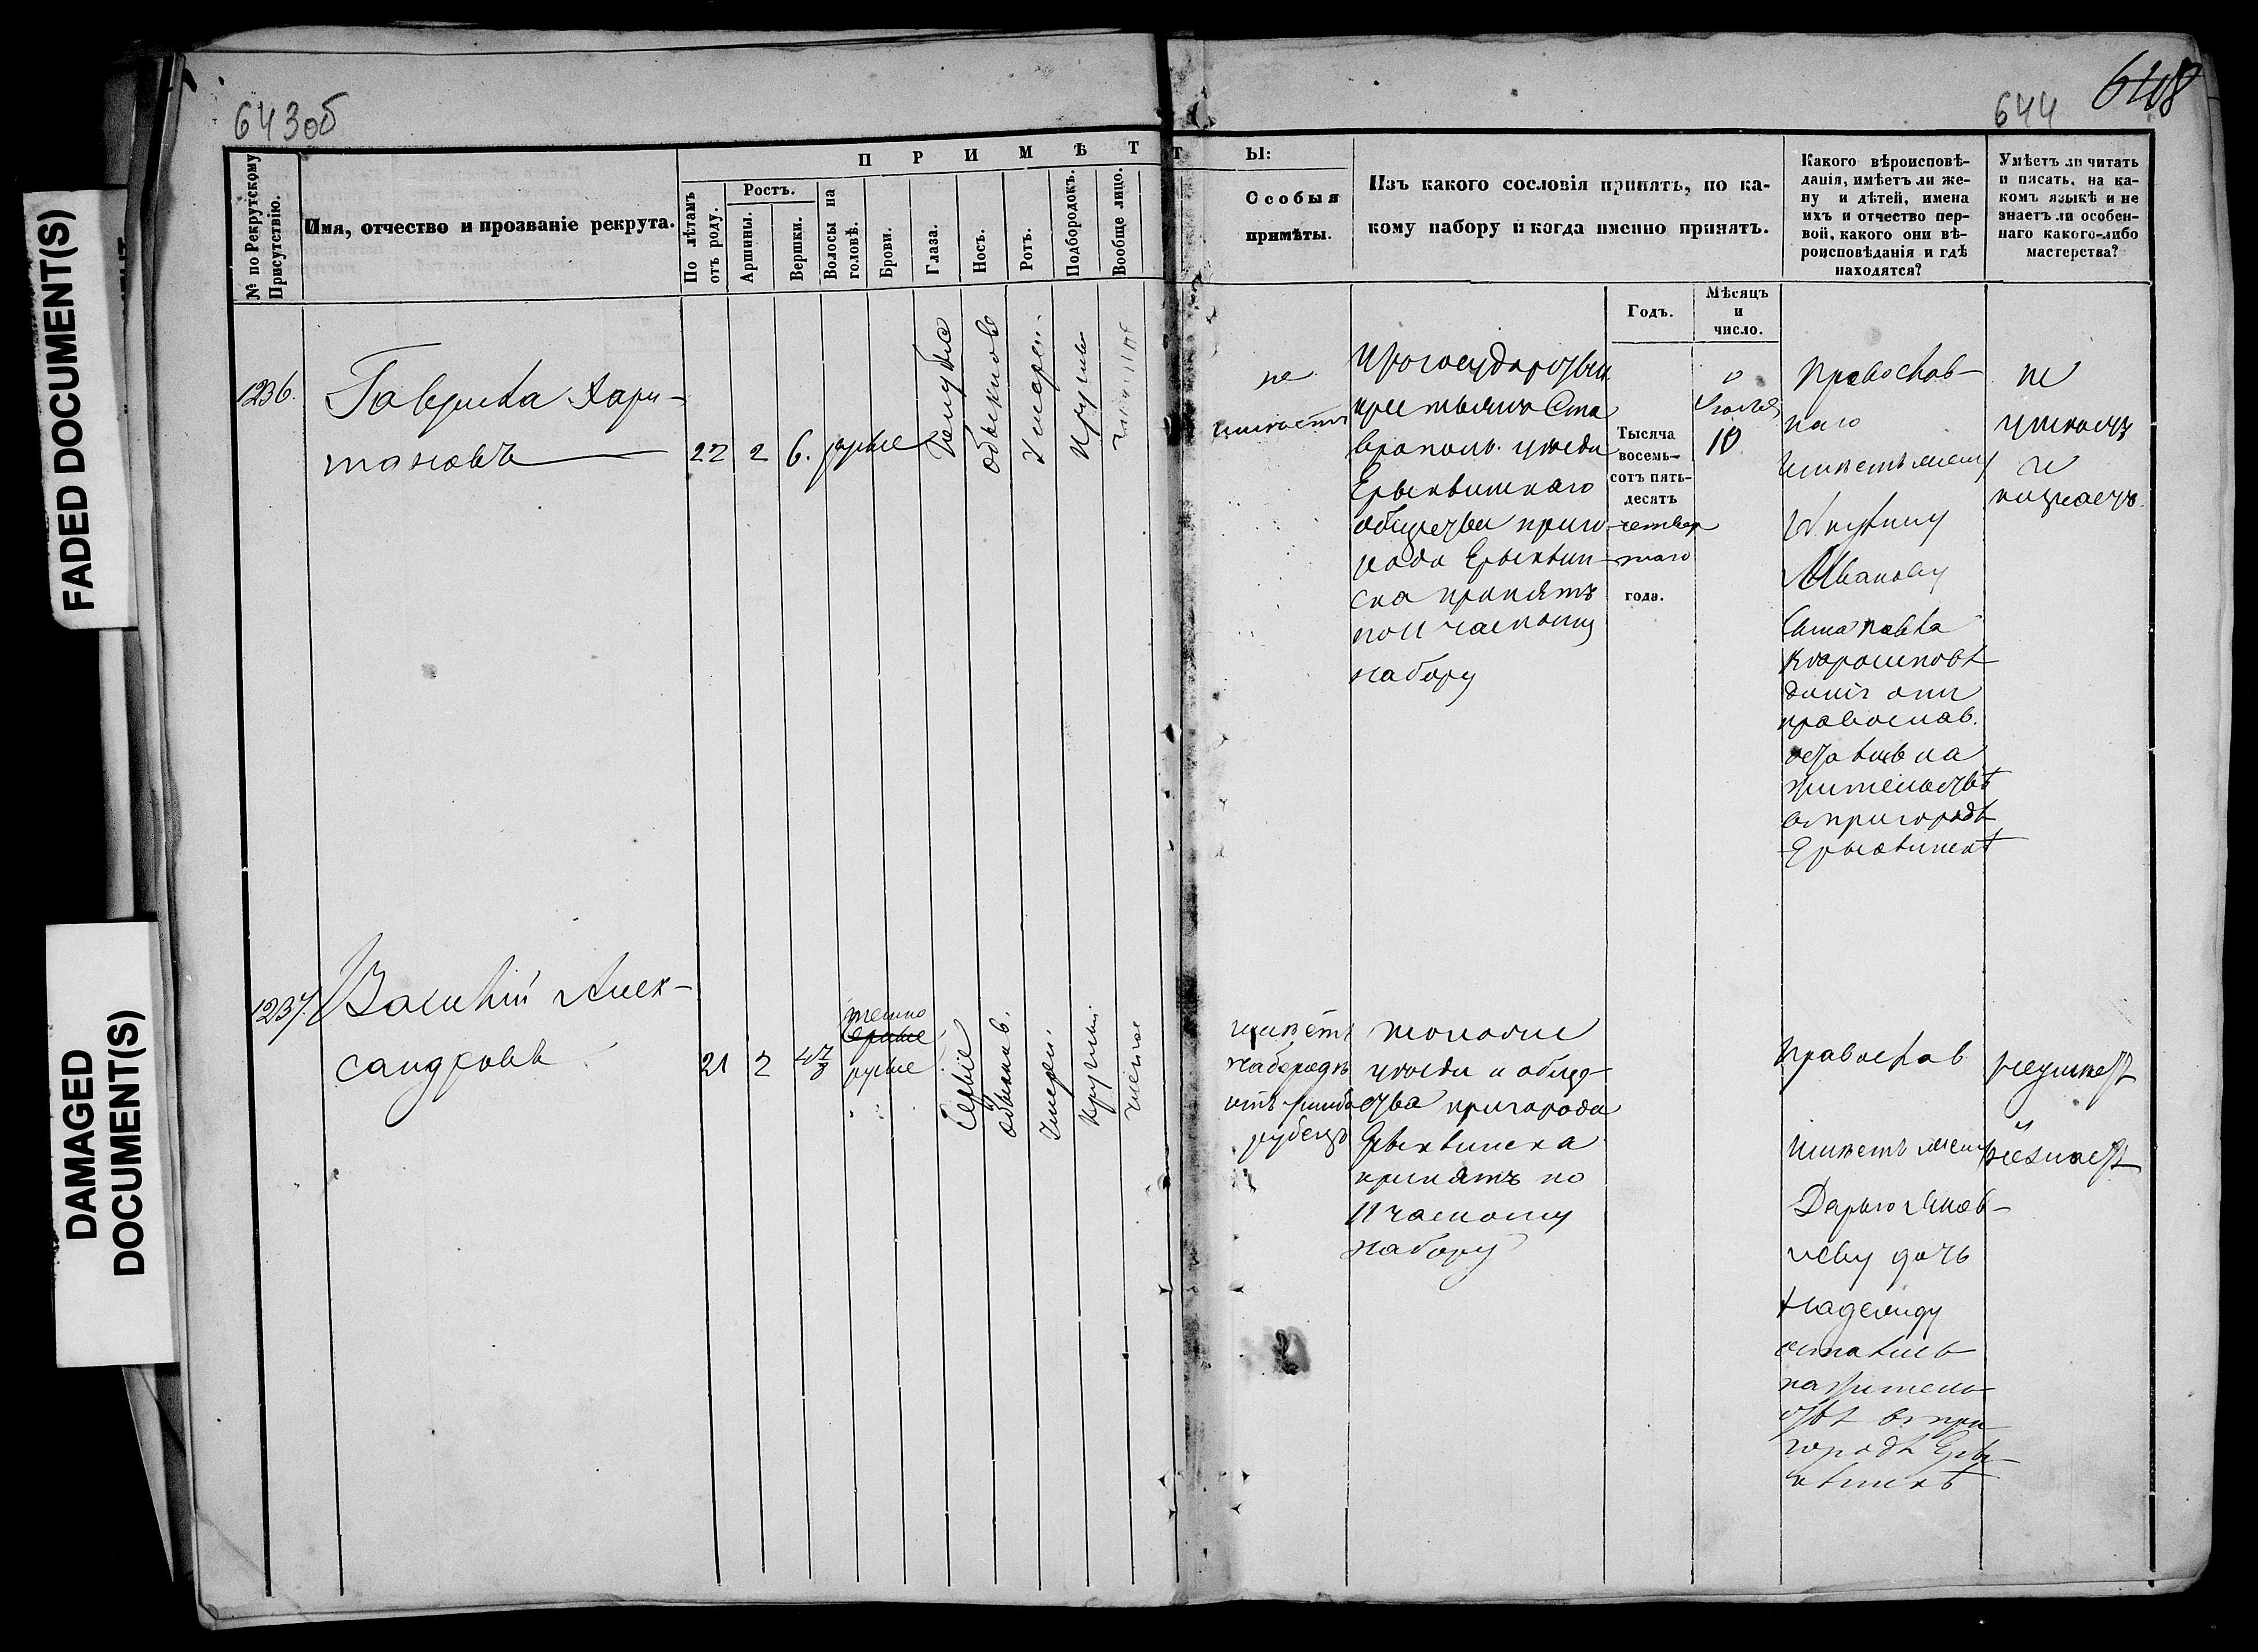 FADED DOCUMENT(S)
DAMAGED
DOCUMENT(S)
643об
644
648
№ по Рекрутскому
Присутствію.
Имя, отчество и прозваніе рекрута.
П Р И М Ѣ Т
По лѣтамъ
отъ роду.
Ростъ.
Аршины.
Вершки.
Волосы на
головѣ.
Брови.
Глаза.
Носъ.
Ротъ.
Подбородокъ.
Вообще лицо.
Т Ы:
Особыя
примѣты.
Изъ какого сословія принятъ, по ка-
кому набору и когда именно принятъ.
Годъ.
Мѣсяцъ
и
число.
Какого вѣроисповѣ-
данія, имѣетъ ли же-
ну и дѣтей, имена
ихъ и отчество пер-
вой, какого они вѣ-
роисповѣданія и гдѣ
находятся?
Умѣетъ ли читать
и писать, на ка-
комъ языкѣ и не
знаетъ ли особен-
наго какого-либо
мастерства?
1236.
Гаврила Хари-
тоновъ
22
2
6.
русые
голубые
обыкнов
умерен.
круглый
не
имѣетъ
Изъ государствен.
крестьянъ Ста
врополь. уѣзда
Ерыклинскаго
общества приго
рода Ерыклин-
ска принятъ
по 11 частному
набору
Тысяча
восемь-
сотъ пять-
десятъ
четвер
таго
года.
10
Православ-
наго
имѣетъ жену
Иванову
сына Павла
вѣроисповѣ
данія они
православ.
остались на
жительствѣ
въ пригородѣ
Ерыклинскѣ
не
умѣетъ
и
незнаетъ.
1237.
Василій Алек-
сандровъ
21
2
4 7/8
темно
русые
сѣрые
обыкнов.
умерен.
круглый
чистое
имѣетъ
рубецъ
уѣзда и обще
ства пригорода
Ерыклинска
принятъ по
11 частному
набору
Православ
имѣетъ жену
Дарью Яков-
леву дочь
Надежду
остались
на житель-
ствѣ въ при
городѣ Еры-
клинскѣ
неумѣетъ
и
незнаетъ